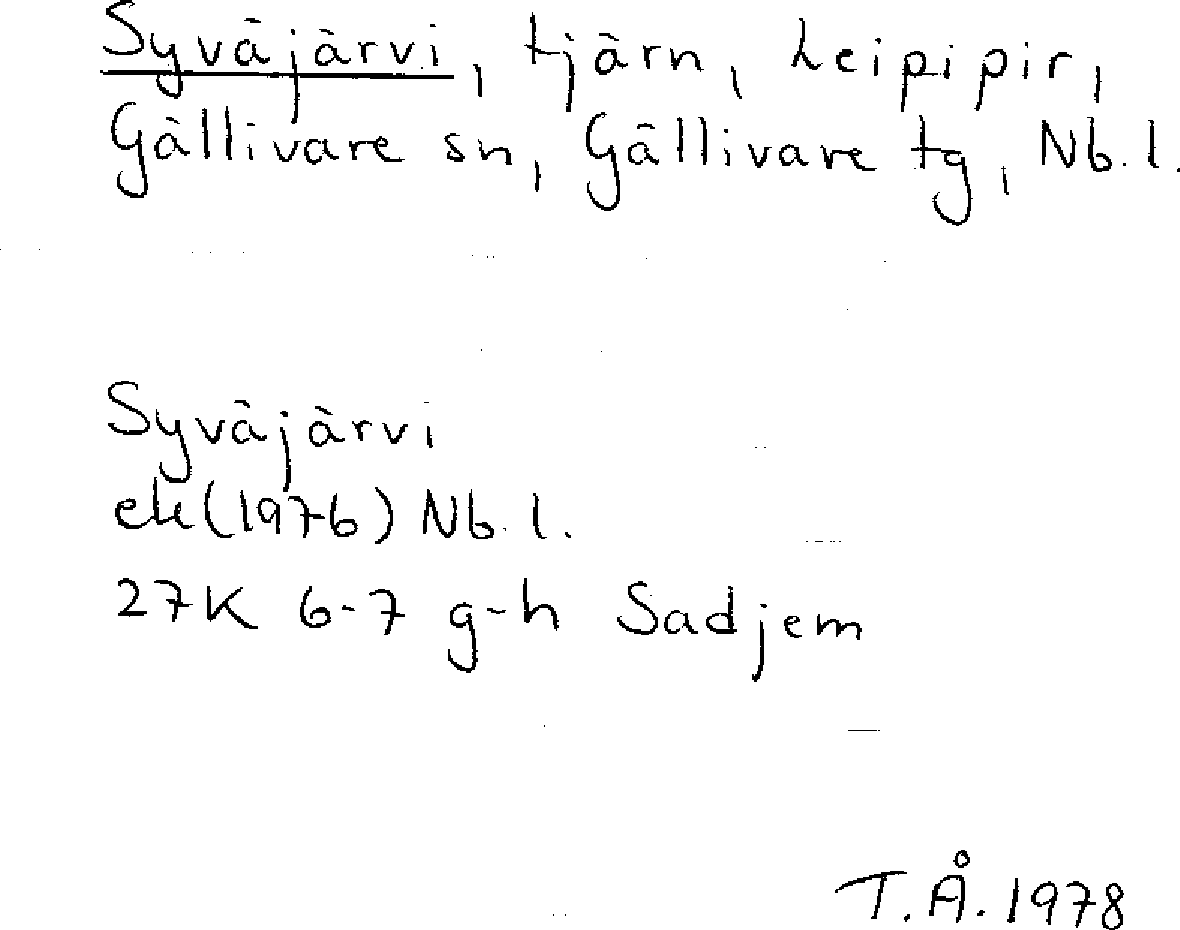 Syväjärvi, tjärn, Leipipir,
Gällivare sn, Gällivare tg, Nb.l.
Syväjärvi
ek (1976) Nb.l.
27K 6-7 g-h Sadjem
T.Å. 1978